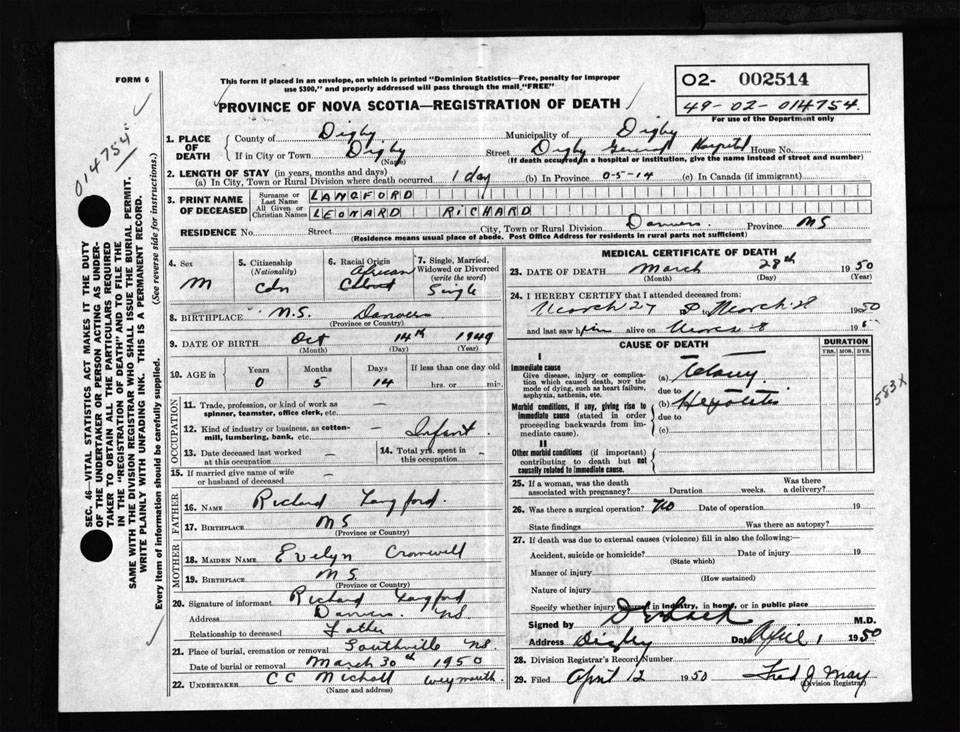 FORM 6
This form if placed in an envelope, on which is printed "Dominion Statistics—Free, penalty for improper
use $300," and properly addressed will pass through the mail "FREE"
O2- 002514
49-02-014754
For use of the Department only
PROVINCE OF NOVA SCOTIA—REGISTRATION OF DEATH
014754
1. PLACE OF DEATH { County of Digby Municipality of Digby
If in City or Town Digby (Name) Street Digby General Hospital House No.
(If death occurred in a hospital or institution, give the name instead of street and number)
2. LENGTH OF STAY (in years, months and days)
(a) In City, Town or Rural Division where death occurred 1 day (b) In Province 0-5-14 (c) In Canada (if immigrant)
3. PRINT NAME OF DECEASED { Surname or Last Name LANGFORD
All Given or Christian Names LEONARD RICHARD
RESIDENCE No. Street City, Town or Rural Division Danvers Province N.S
(Residence means usual place of abode. Post Office Address for residents in rural parts not sufficient)
4. Sex M
5. Citizenship (Nationality) Cdn
6. Racial Origin African
7. Single, Married, Widowed or Divorced (write the word) Single
8. BIRTHPLACE N.S. Danvers
(Province or Country)
9. DATE OF BIRTH Oct 14th 1949
(Month) (Day) (Year)
10. AGE in { Years Months Days If less than one day old
0 5 14 hrs. or min.
OCCUPATION
11. Trade, profession, or kind of work as
spinner, teamster, office clerk, etc. —
12. Kind of industry or business, as cotton-
mill, lumbering, bank, etc. Infant
13. Date deceased last worked at this occupation —
14. Total yrs. spent in this occupation —
15. If married give name of wife
or husband of deceased —
FATHER
16. NAME Richard Langford
17. BIRTHPLACE N S
(Province or Country)
MOTHER
18. MAIDEN NAME Evelyn Cromwell
19. BIRTHPLACE N S.
(Province or Country)
20. Signature of informant Richard Langford
Address Danvers. NS.
Relationship to deceased Father
21. Place of burial, cremation or removal Southville NS.
Date of burial or removal March 30th 1950
22. UNDERTAKER C C Weymouth
(Name and address)
MEDICAL CERTIFICATE OF DEATH
23. DATE OF DEATH March 28th 1950
(Month) (Day) (Year)
24. I HEREBY CERTIFY that I attended deceased from:
March 27 to March 28 1950
and last saw him alive on 19
CAUSE OF DEATH DURATION
YRS. MOS. DYS.
I
Immediate cause
Give disease, injury or complica-
tion which caused death, not the
mode of dying, such as heart failure,
asphyxia, asthenia, etc.
(a) Tetany
due to
Morbid conditions, if any, giving rise to
immediate cause (stated in order
proceeding backwards from im-
mediate cause).
(b) Hepatitis
due to
(c)
583X
II
Other morbid conditions (if important)
contributing to death but not
causally related to immediate cause.
25. If a woman, was the death
associated with pregnancy? Duration weeks. Was there a delivery?
26. Was there a surgical operation? No Date of operation 19
State findings Was there an autopsy?
27. If death was due to external causes (violence) fill in also the following:—
Accident, suicide or homicide? Date of injury 19
(State which)
Manner of injury
(How sustained)
Nature of injury
Specify whether injury occurred in industry, in home, or in public place
Signed by M.D.
Address Digby Date April 1 1950
28. Division Registrar's Record Number
29. Filed April 12 1950 Fred J May
(Division Registrar)
SEC. 46—VITAL STATISTICS ACT MAKES IT THE DUTY
OF THE UNDERTAKER OR PERSON ACTING AS UNDER-
TAKER TO OBTAIN ALL THE PARTICULARS REQUIRED
IN THE "REGISTRATION OF DEATH" AND TO FILE THE
SAME WITH THE DIVISION REGISTRAR WHO SHALL ISSUE THE BURIAL PERMIT.
WRITE PLAINLY WITH UNFADING INK. THIS IS A PERMANENT RECORD.
Every item of information should be carefully supplied. (See reverse side for instructions.)